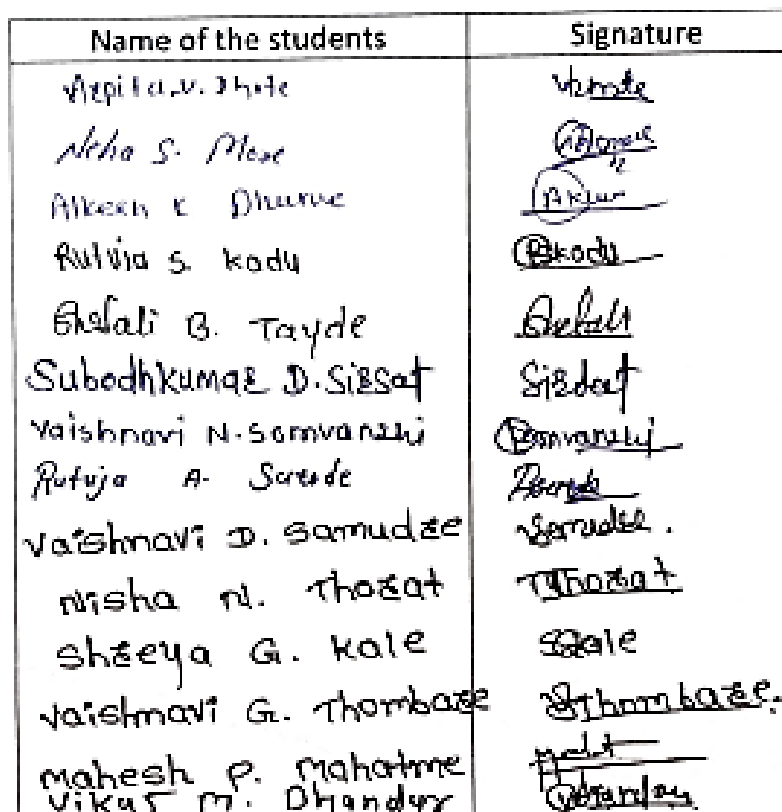 Name of the students Signature
Arpita.V. Dhote
Neha S. More
Alkesh K Dhurve
Rutvia S. Kadu Rskadu
Shefali B. Tayde Shefali
Subodhkumar D. Sirsat Sirsat
Vaishnavi N. Somvanshi Psomvanshi
Rutuja A-
Vaishnavi D. Samudre Samudre.
Nisha N. Thorat Thorat
Shreya G. Kale Skale
Vaishnavi G. Thombare Thombare.
Mahesh P. Mahatme
Vikas M.